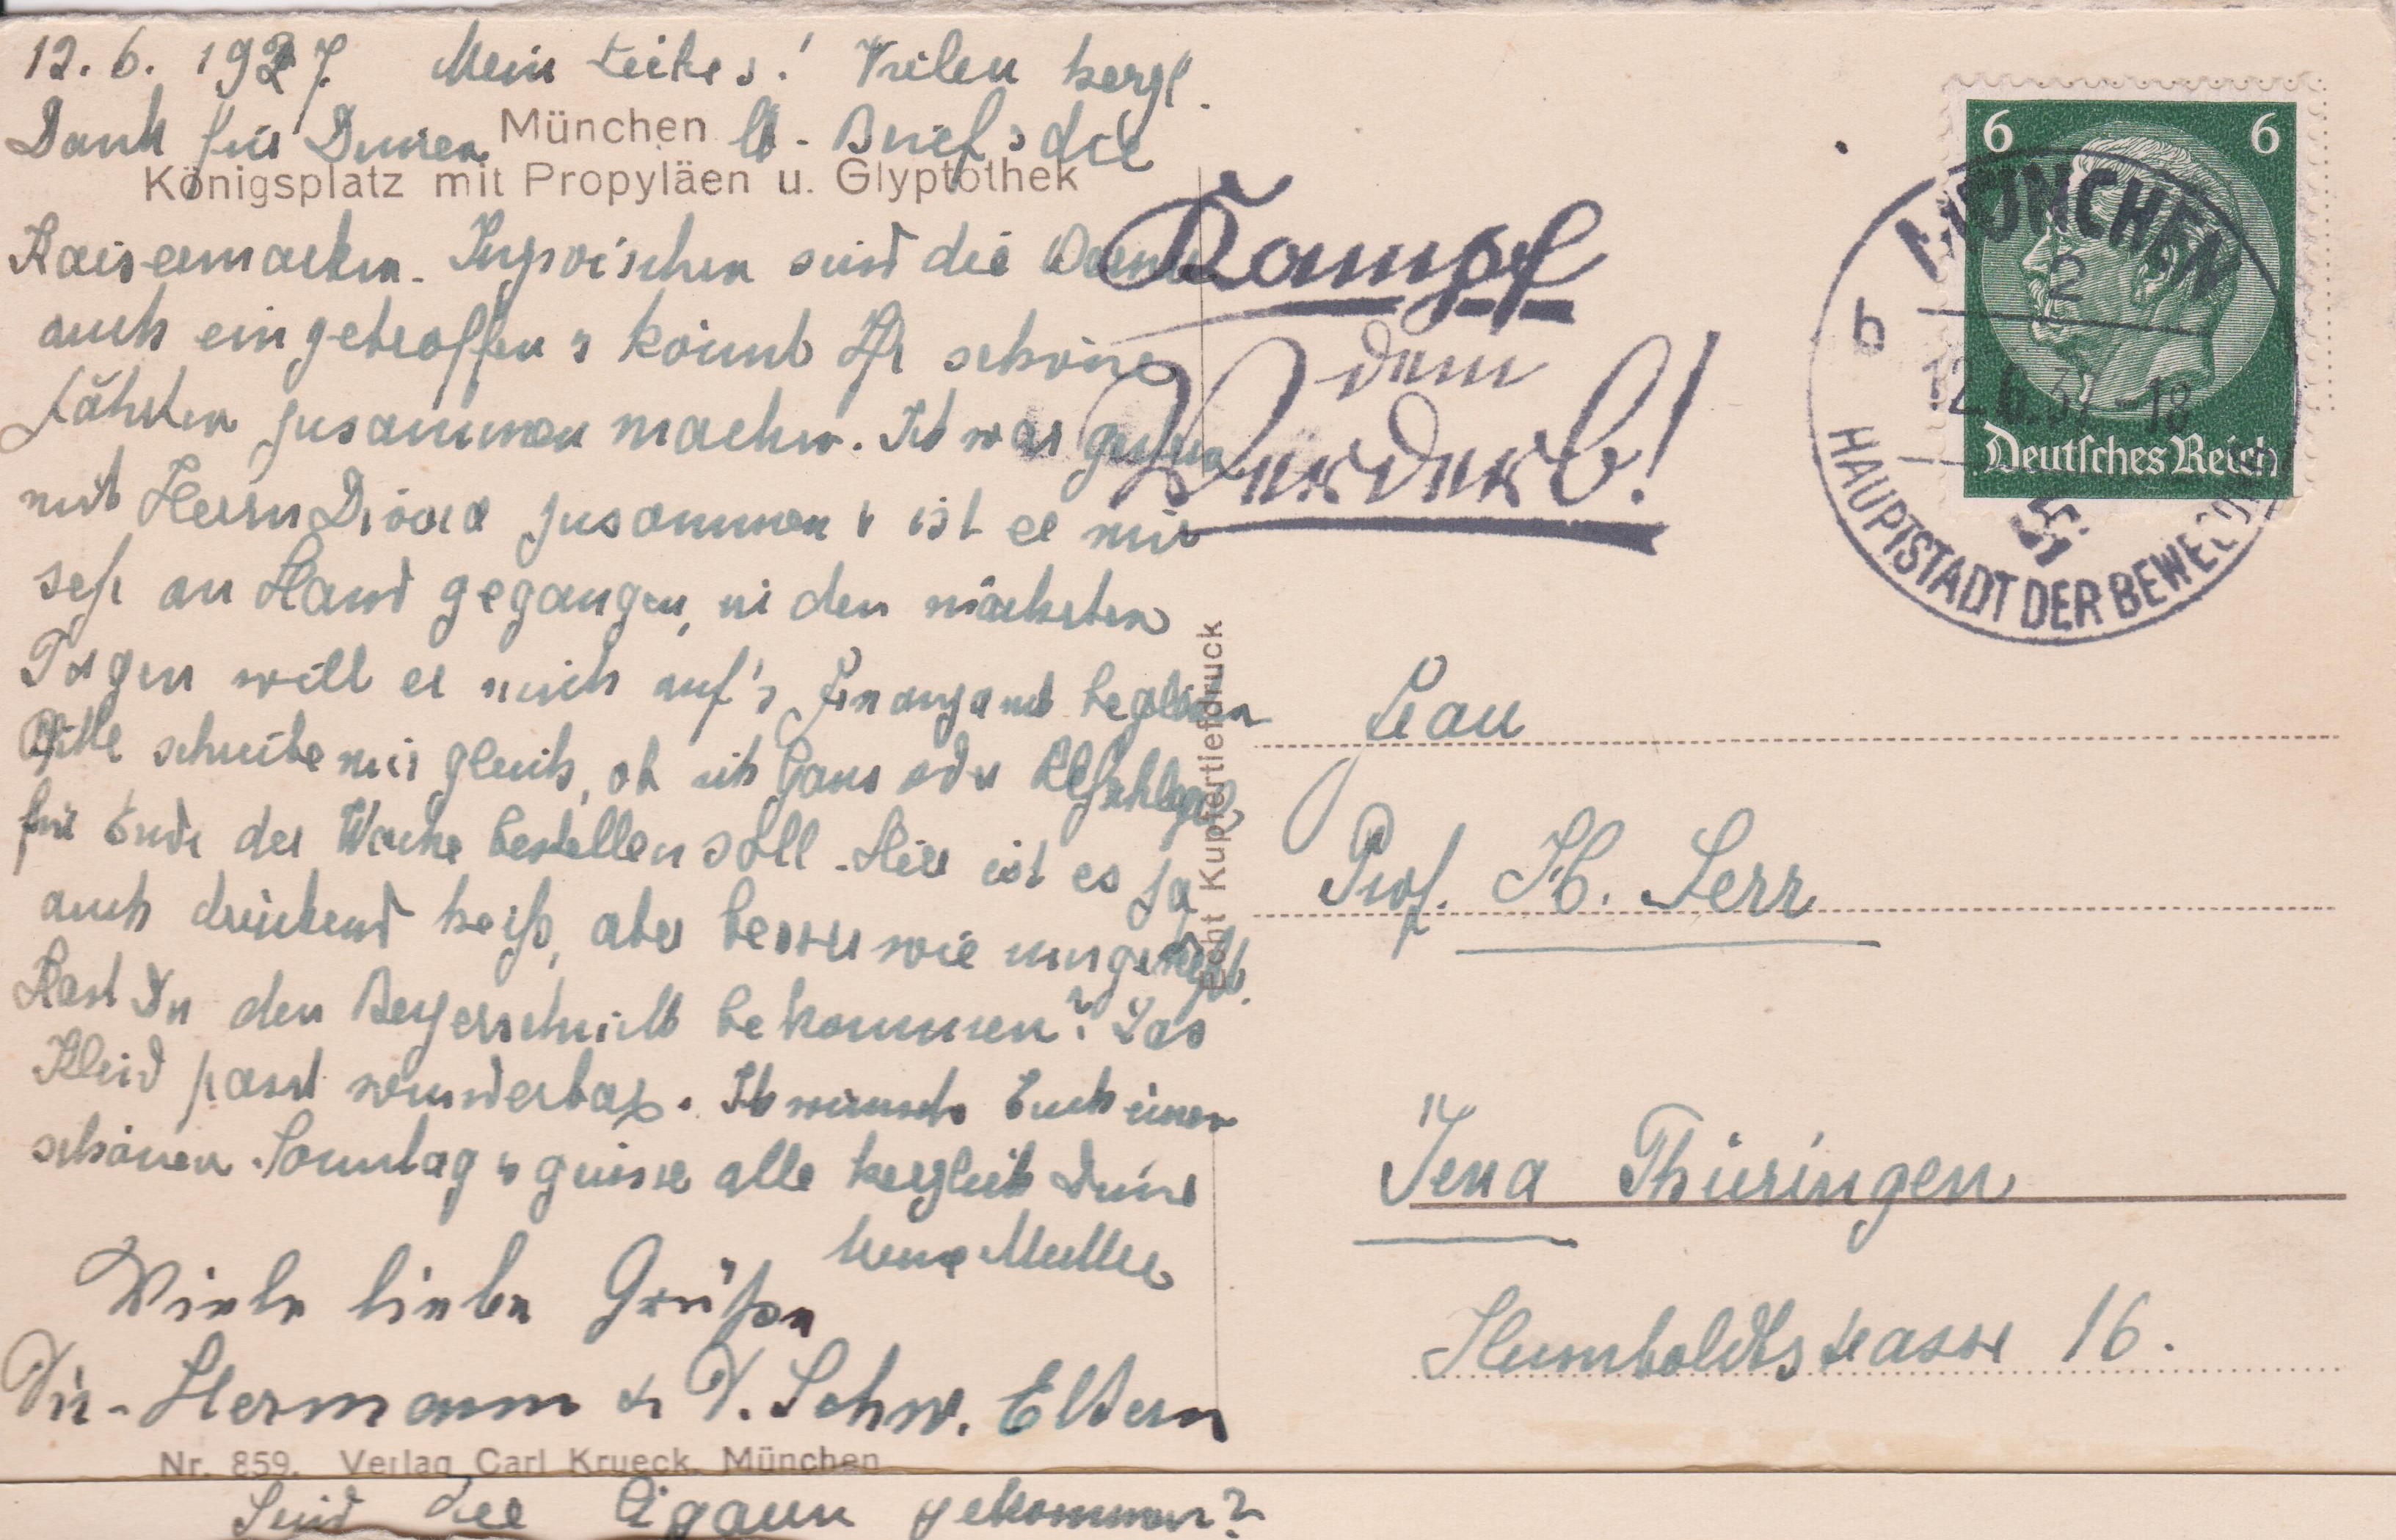 12. 6. 1937 Mein Liebes! Vielen herzl.
Dank für Deinen l. Brief & die
München
Königsplatz mit Propyläen u. Glyptothek
Kaisermarken. Inzwischen sind die
auch eingetroffen & könnt Ihr schöne
Fährten zusammen machen. Ich war gestern
mit Herrn zusammen & ist er mir
sehr an Hand gegangen, in den nächsten
Tagen will er mich auf's Finanzamt begleiten
Bitte schreibe mir gleich, ob ich Gans oder
für Ende der Woche bestellen soll. Hier ist es ja
auch drückend heiß, aber besser wie umgekehrt.
Hast Du den bekommen? Das
Kleid passt wunderbar. Ich wünsche Euch einen
schönen Sonntag & grüsse alle herzlich Deine
treue Mutter
Viele liebe Grüße
Hermann & V. Schw. Eltern
Nr. 859. Verlag Carl Krueck, München
Sind die gekommen?
Echt Kupfertiefdruck
Kampf
dem
Verderb!
6 6
Deutsches Reich
MÜNCHEN
2
b
12.6.37-18
HAUPTSTADT DER BEWEGUNG
Frau
Prof. H. Serr
Jena Thüringen
Humboldtstrasse 16.